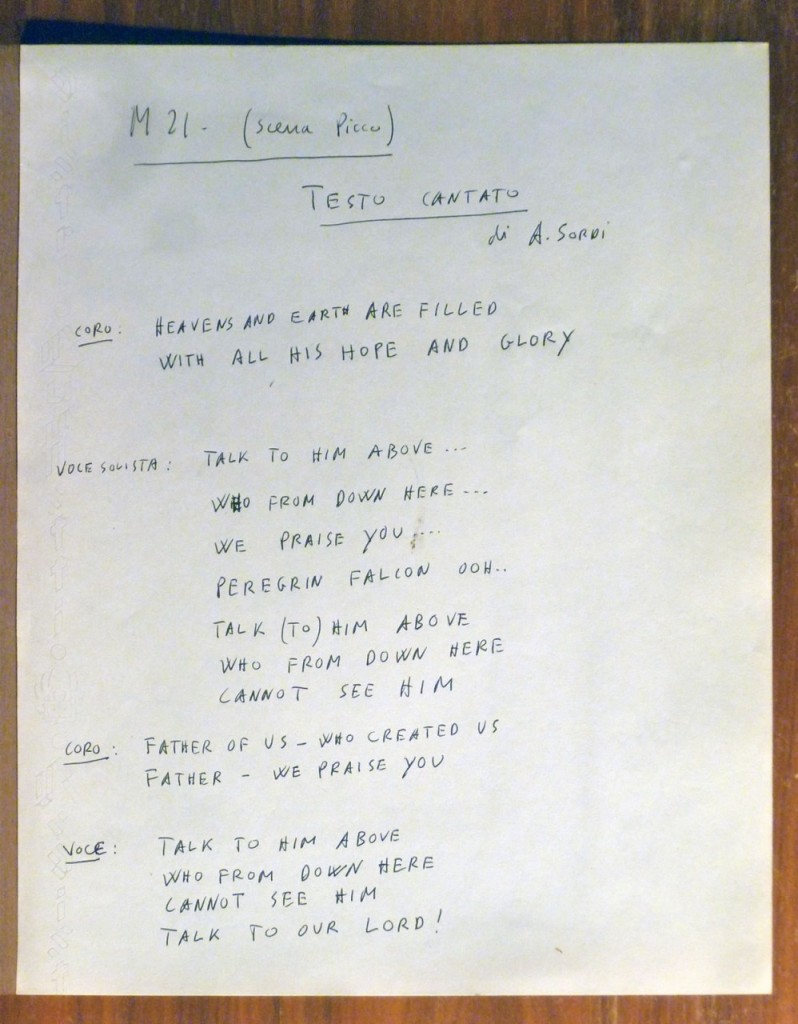 M 21 - (scena Picco)
TESTO CANTATO
di A. SORDI
CORO: HEAVENS AND EARTH ARE FILLED
WITH ALL HIS HOPE AND GLORY
VOCE SOLISTA: TALK TO HIM ABOVE ...
WHO FROM DOWN HERE ...
WE PRAISE YOU ....
PEREGRIN FALCON OOH..
TALK (TO) HIM ABOVE
WHO FROM DOWN HERE
CANNOT SEE HIM
CORO: FATHER OF US - WHO CREATED US
FATHER - WE PRAISE YOU
VOCE: TALK TO HIM ABOVE
WHO FROM DOWN HERE
CANNOT SEE HIM
TALK TO OUR LORD!